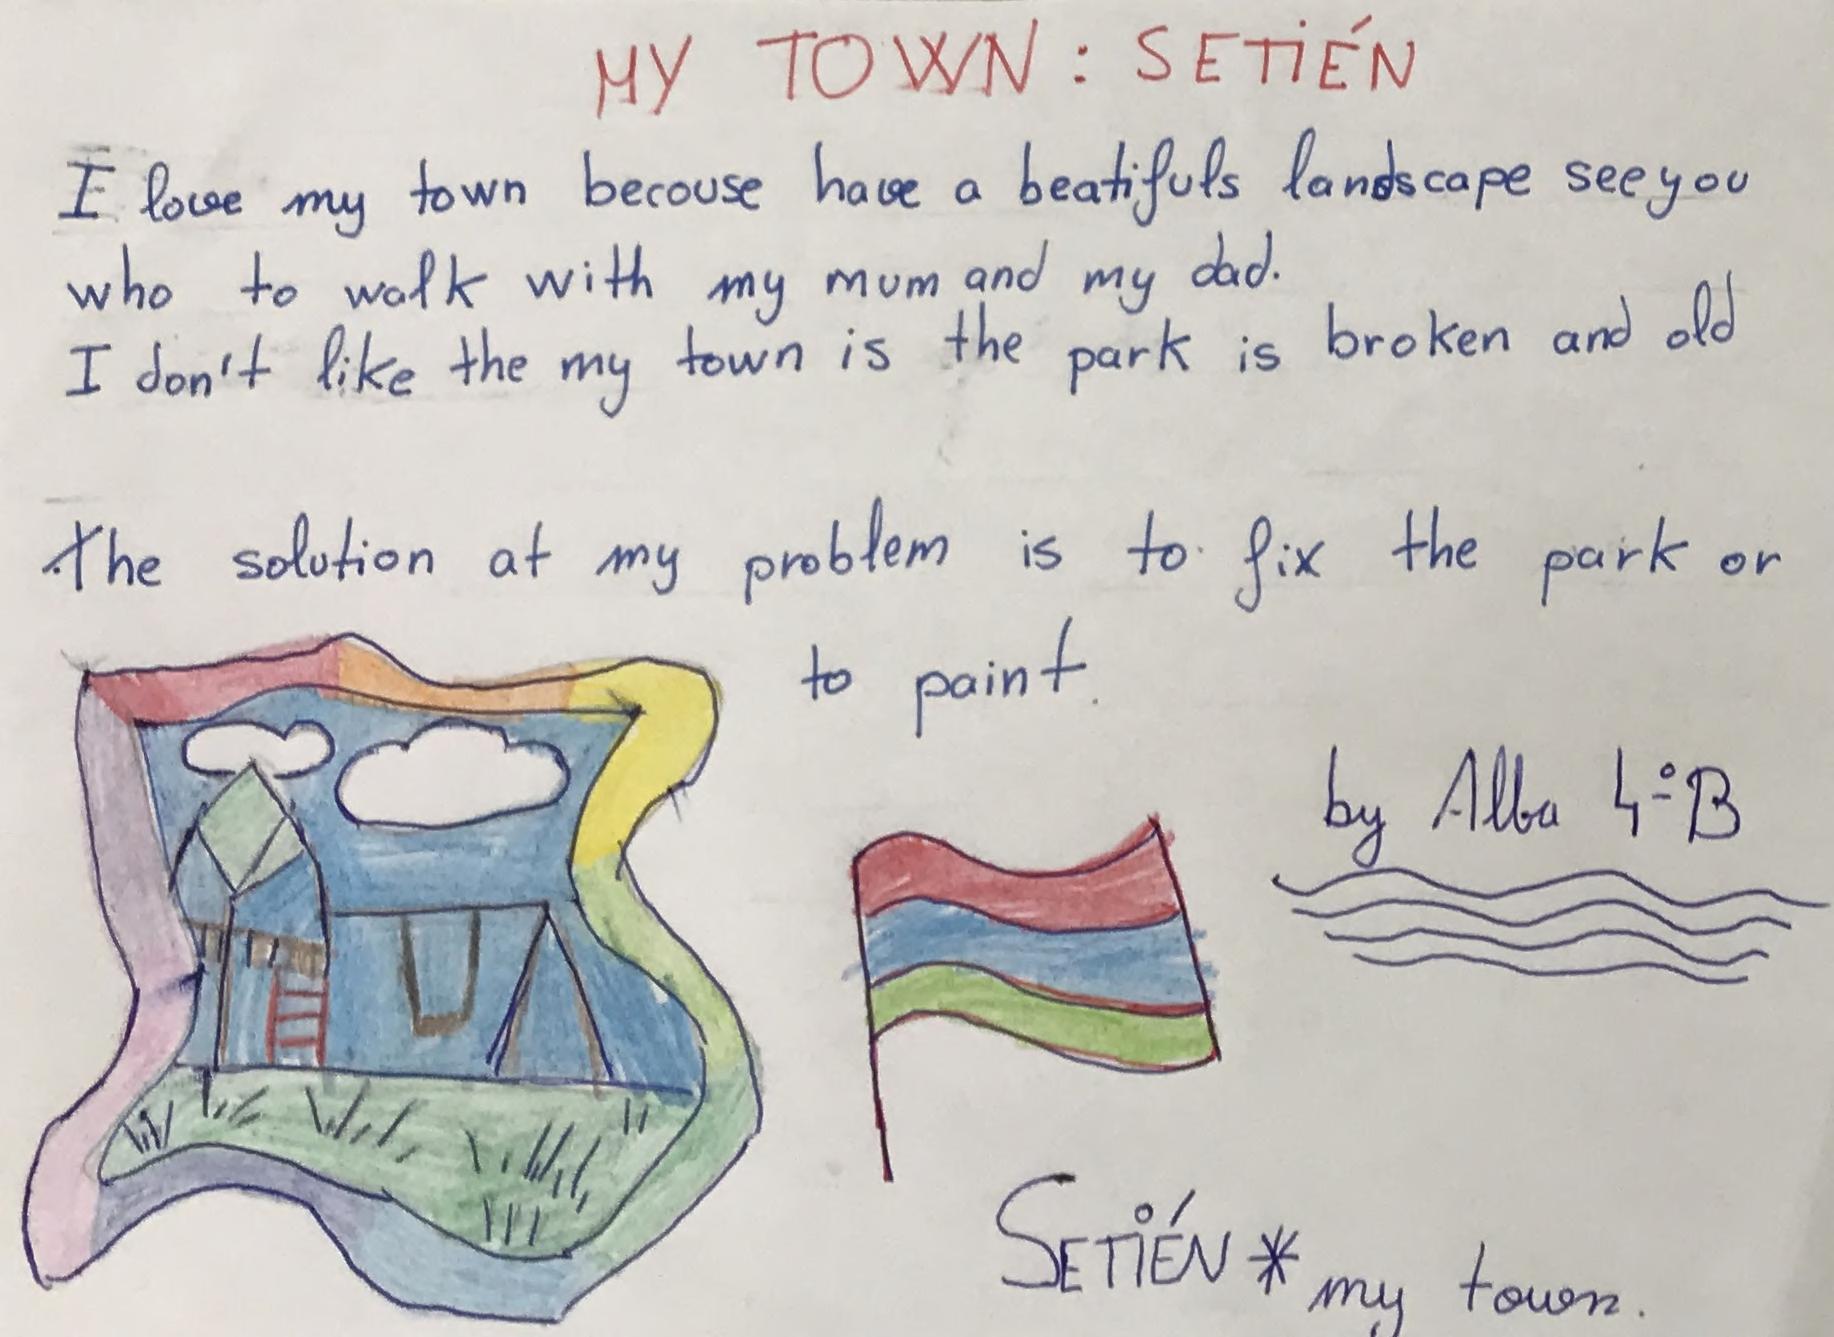 MY TOWN: SETIÉN
I love my town becouse have a beatifuls landscape see you
who to walk with my mum and my dad.
I don't like the my town is the park is broken and old
The solution at my problem is to fix the park or
to paint.
by Alba 4ºB
SETIÉN * my town.